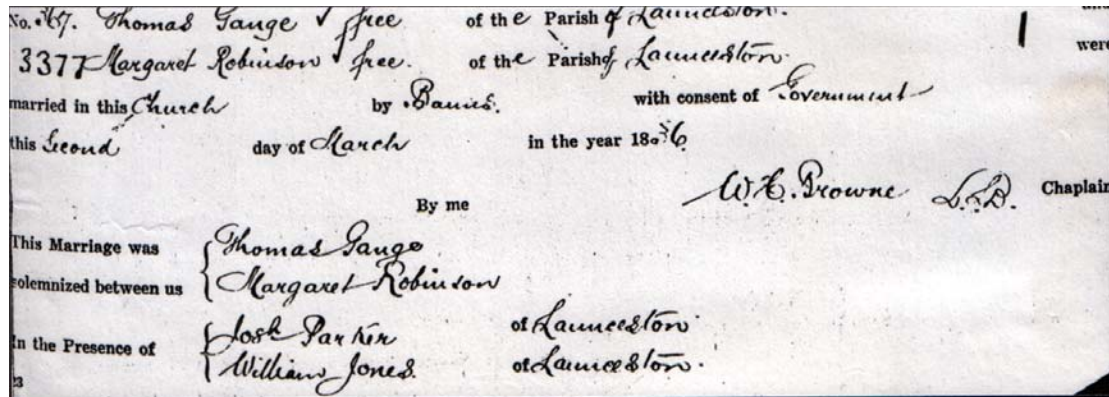 No. 367. Thomas Gauge free of the Parish of Launceston.
3377 Margaret Robinson free. of the Parish of Launceston. were
married in this Church by Banns. with consent of Government
this Second day of March in the year 1836
By me W. H. Browne L.L.D. Chaplain
This Marriage was Thomas Gauge
solemnized between us Margaret Robinson
In the Presence of Josh Parker of Launceston
William Jones. of Launceston.
23